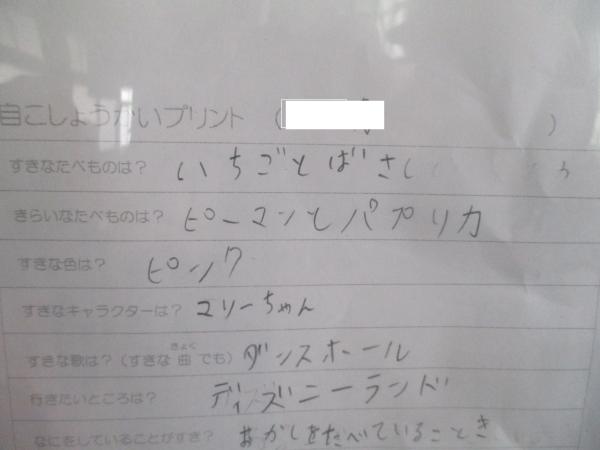 自こしょうかいプリント ( )
すきなたべものは? いちごとばさし
きらいなたべものは? ピーマンとパプリカ
すきな色は? ピンク
すきなキャラクターは? ユリーちゃん
すきな歌は?(すきな曲でも) ダンスホール
きょく
行きたいところは? ディズニーランド
なにをしていることがすき? おかしをたべていることき